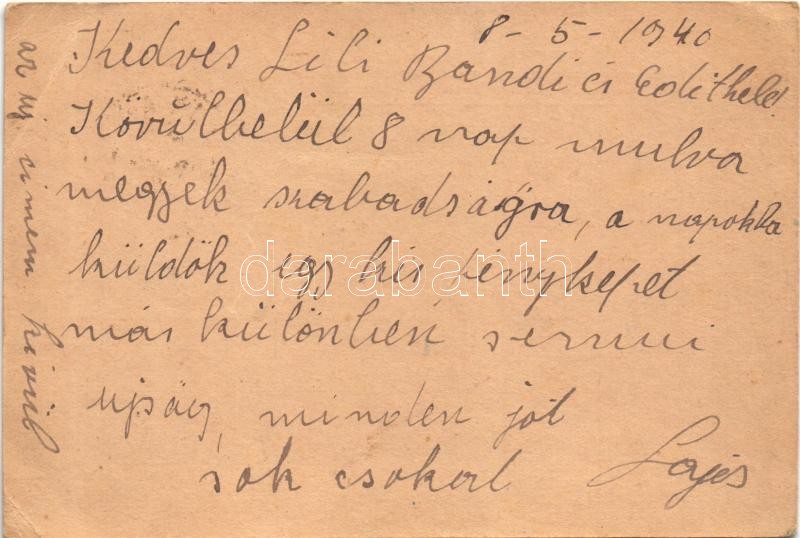 8 - 5 - 1940
Kedves Lili Bandi és
Kőrülbelül 8 nap mulva
megyek szabadságra, a napokba
küldök egy kis fényképet
más különben semmi
ujság, minden jót
sok csokol Lajos
az uj cimem kivül
darabanth